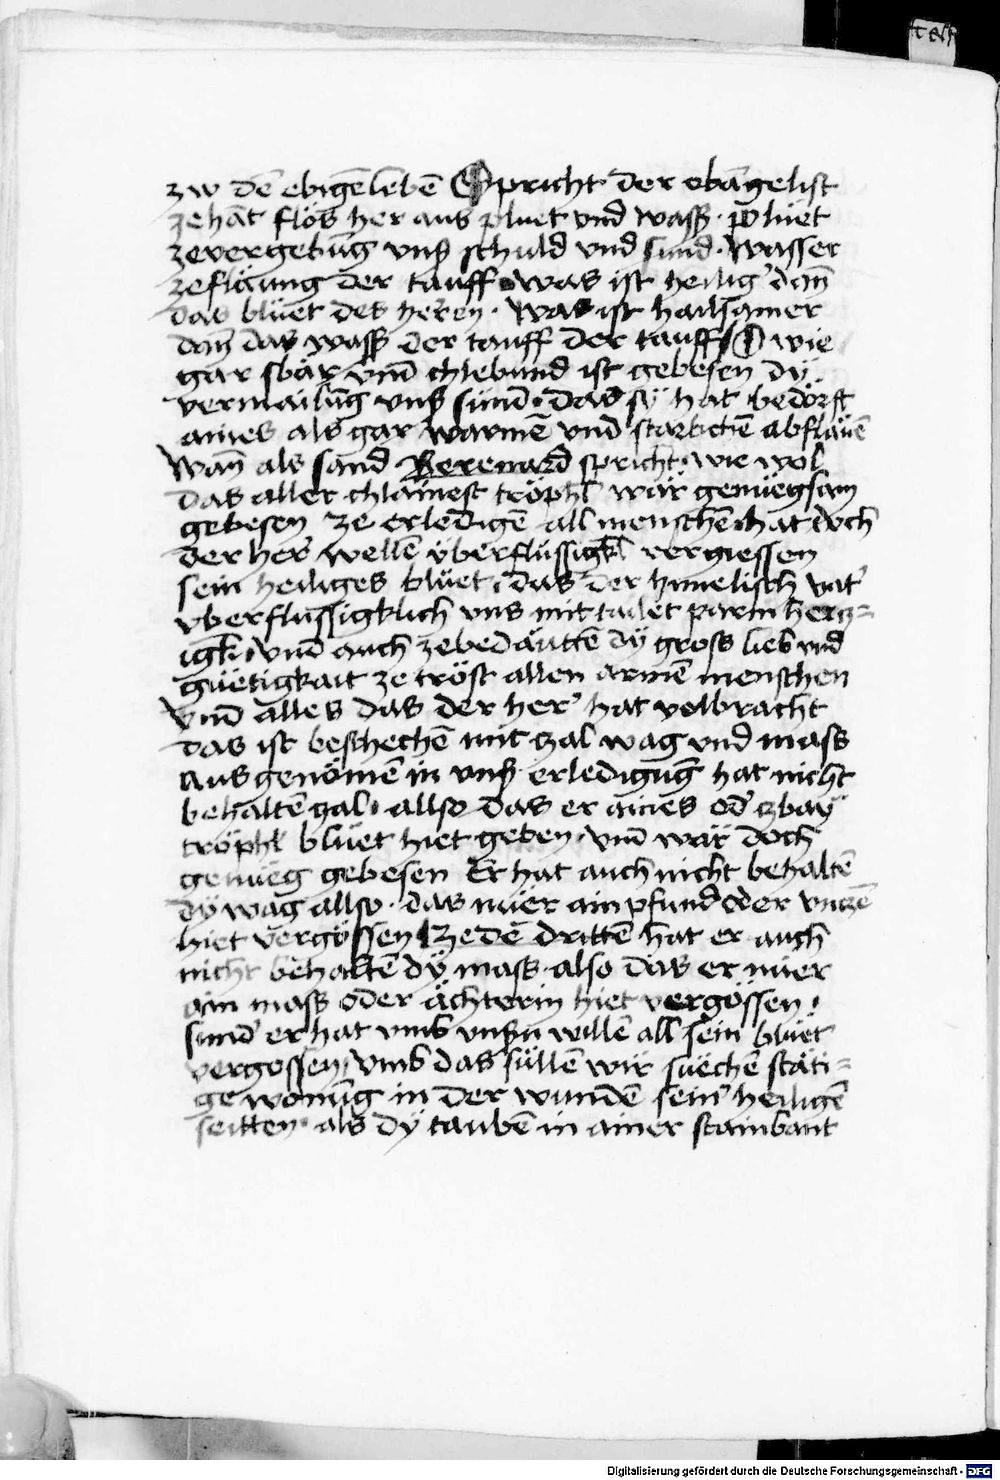 zw dē ebigē lebē Spricht der ebāngelist
zehāt flöß her aus pluet vnd wasß · pluet
zevergebūg vnß schuld vnd sund · wasser
zeflāung der tauff was ist heilig' dañ
das bluet des heren · was ist hailsamer
dañ das wasß der tauff der tauff O wie
gar sbār vnd chlebund ist gebesen dy
vermailūg vnß sünd · das sy hat bedörft
aines als gar warmē vnd starkchē abflāuē
wañ als sand Berenard spricht · wie wol
das aller chlainest tröphl wār genüegsam
gebesen ze erledigē all menschē hat doch
der her wellē überflüssigkl vergiessen
sein heiliges blüet · das der himelisch vat'
vberflüssigklich vns mit tailet parmherz=
igk · vnd auch zebedāuttē dy gross lieb vnd
güetigkait ze tröst allen armē menschen
vnd alles das der her' hat volbracht
das ist beschechē mit zal wag vnd mass
aus genömē in vnß erledigūg hat nicht
behaltē zal · allso das er aines od' zbay
tröphl bluet hiet geben · vnd wār doch
genüeg gebesen Er hat auch nicht behaltē
dy wag allso · das nüer ain pfund oder vnczē
hiet vergössen zedē drittē hat er auch
nicht behaltē dy mass · also das er nüer
ain mass oder āchterin hiet vergössen ·
sund' er hat vmb vnßn willē all sein blüet
vergossen · vmb das süllē wir süechē stāti=
ge wonūg in der wundē sein' heiligē
seitten · als dy taubē in ainer stainbant
Digitalisierung gefördert durch die Deutsche Forschungsgemeinschaft - DFG